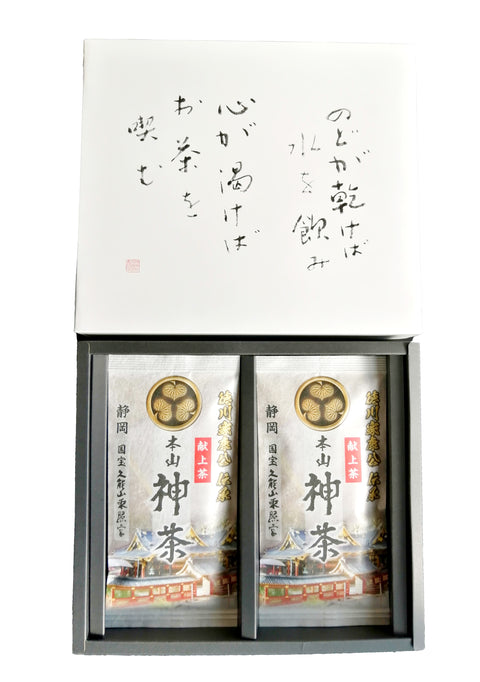 のどが乾けば
水を飲み
心が渇けば
お茶を
喫む
徳川家康公伝来
献上茶
本山
神茶
静岡
国宝久能山東照宮
徳川家康公伝来
献上茶
本山
神茶
静岡
国宝久能山東照宮